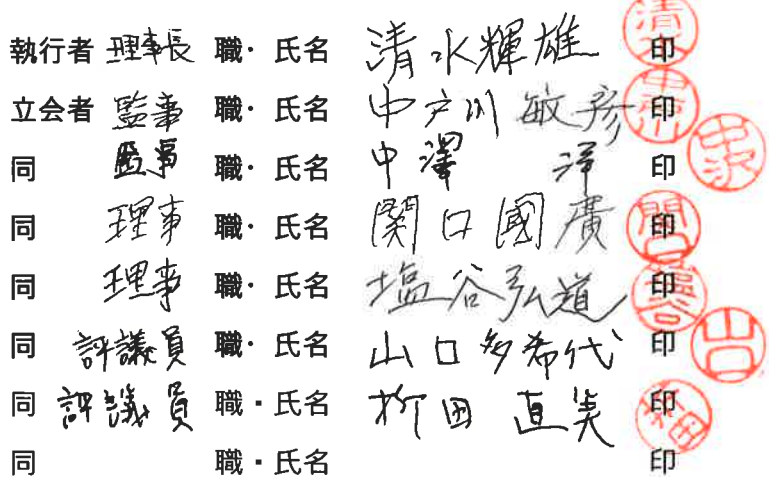 執行者 理事長 職・氏名 清水輝雄 印 清水
立会者 監事 職・氏名 中戸川 敏彦 印 中戸川
同 監事 職・氏名 中澤 洋 印 中沢
同 理事 職・氏名 関口國廣 印 関口
同 理事 職・氏名 塩谷弘道 印 塩谷
同 評議員 職・氏名 山口多希代 印 山口
同 評議員 職・氏名 柳田 直美 印 柳田
同 職・氏名 印